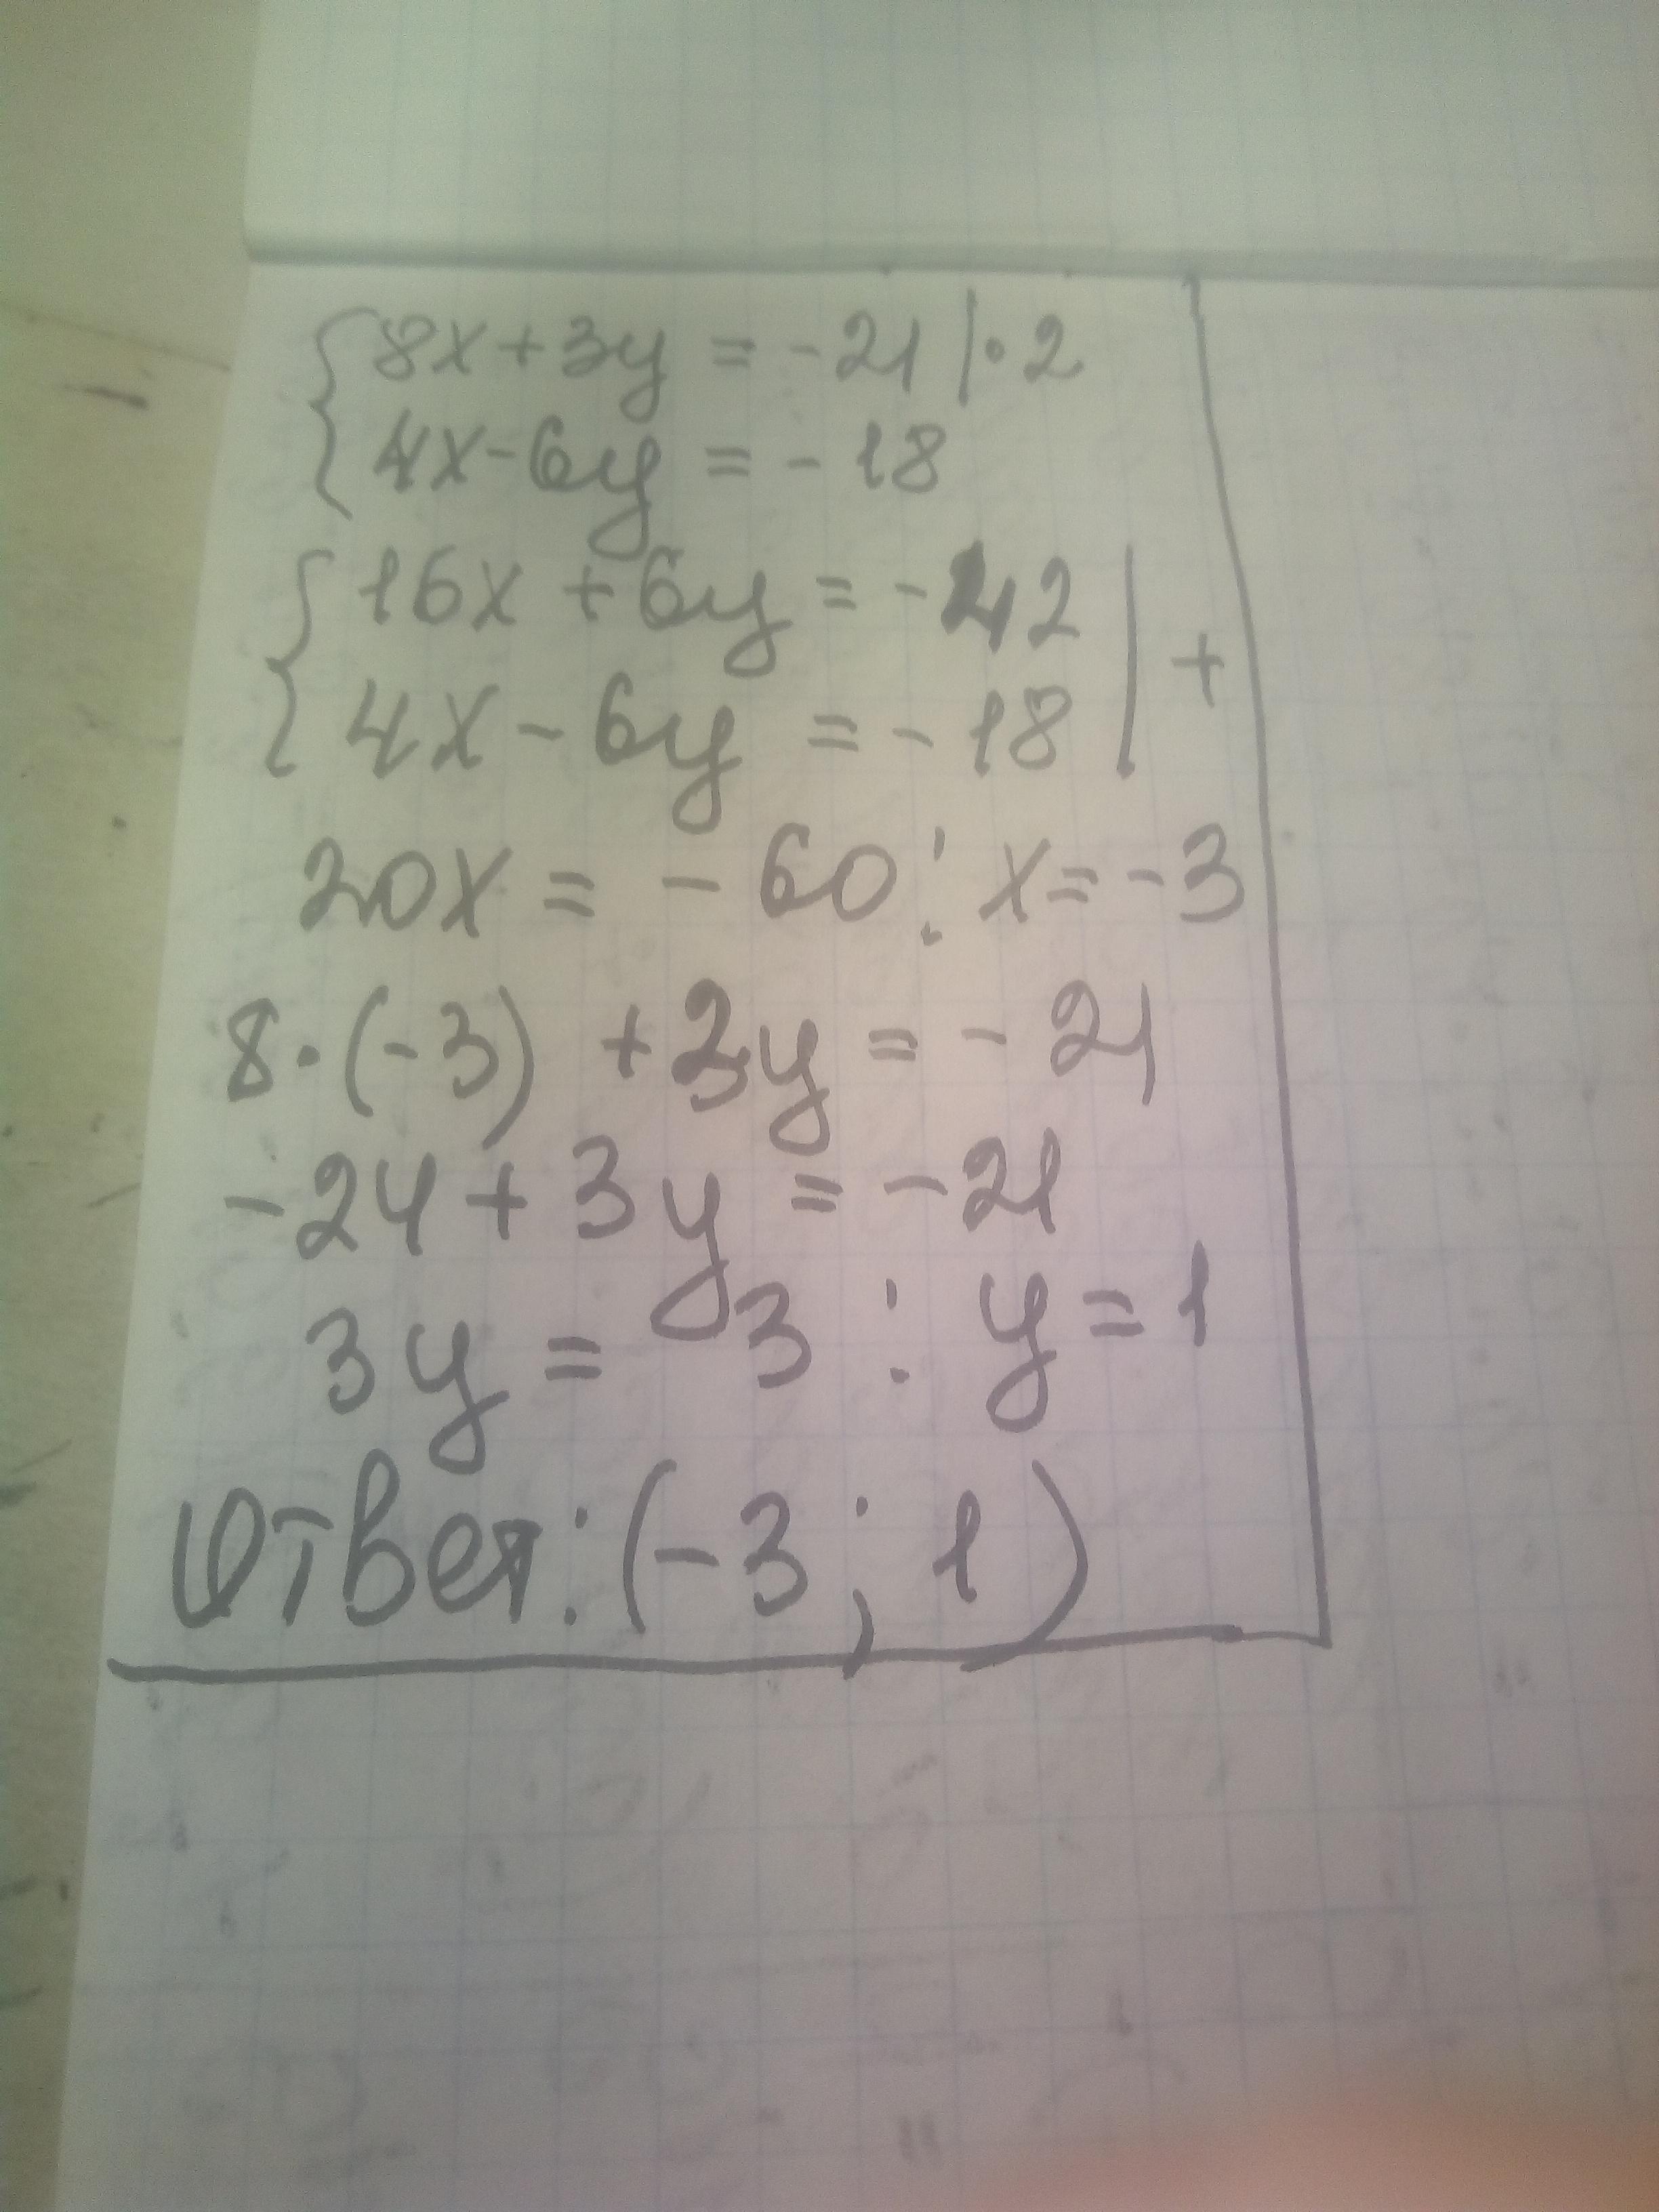 {8x+3y = -21 |·2
{4x-6y = -18
{16x+6y = -42 | +
{4x-6y = -18 |
20x = -60; x = -3
8·(-3) + 3y = -21
-24 + 3y = -21
3y = 3; y = 1
Ответ: (-3; 1)